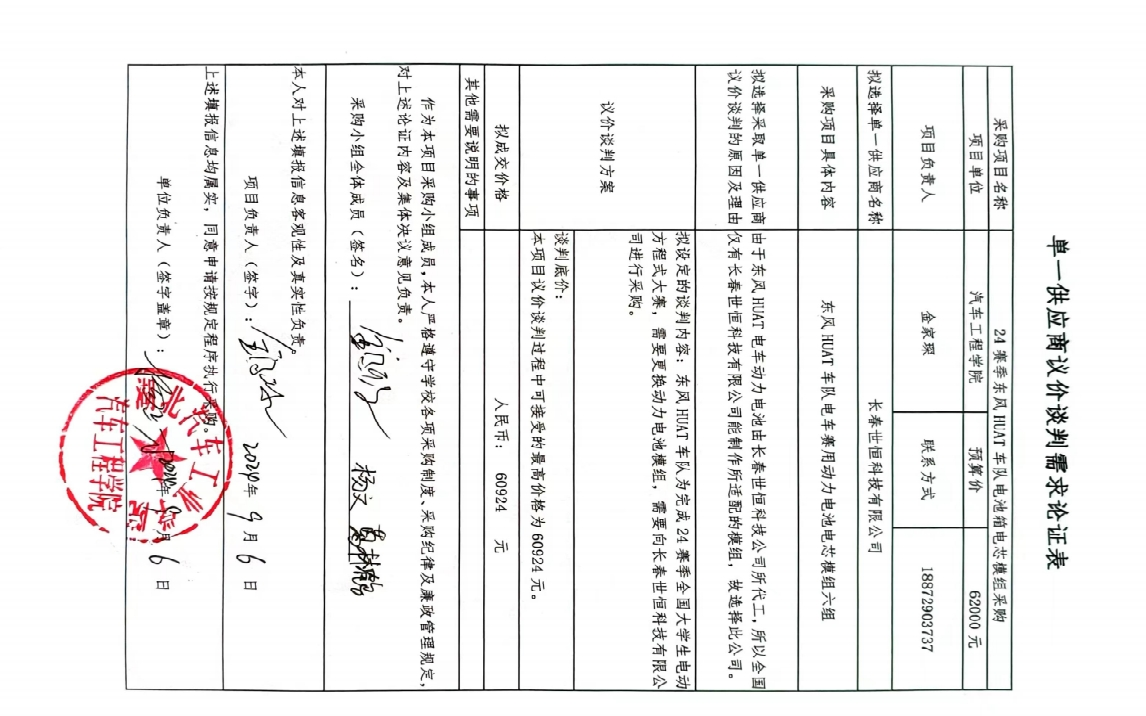 单一供应商议价谈判需求论证表
采购项目名称 24赛季东风HUAT车队电池箱电芯模组采购
项目单位 汽车工程学院 预算价 62000 元
项目负责人 金家琛 联系方式 18872903737
拟选择单一供应商名称 长春世恒科技有限公司
采购项目具体内容 东风HUAT车队电车赛用动力电池电芯模组六组
拟选择采取单一供应商
议价谈判的原因及理由
由于东风HUAT电车动力电池由长春世恒科技公司所代工,所以全国
仅有长春世恒科技有限公司能制作所适配的模组,故选择此公司。
议价谈判方案
拟设定的谈判内容:东风HUAT车队为完成24赛季全国大学生电动
方程式大赛,需要更换动力电池模组,需要向长春世恒科技有限公
司进行采购。
谈判底价:
本项目议价谈判过程中可接受的最高价格为60924元。
拟成交价格 人民币: 60924 元
其他需要说明的事项
作为本项目采购小组成员,本人严格遵守学校各项采购制度、采购纪律及廉政管理规定,
对上述论证内容及集体决议意见负责。
采购小组全体成员(签名): 杨文
本人对上述填报信息客观性及真实性负责。
项目负责人(签字): 2024年9月6日
上述填报信息均属实,同意申请按规定程序执行采购。
单位负责人(签字盖章): 2024年9月6日
湖北汽车工业学院
汽车工程学院